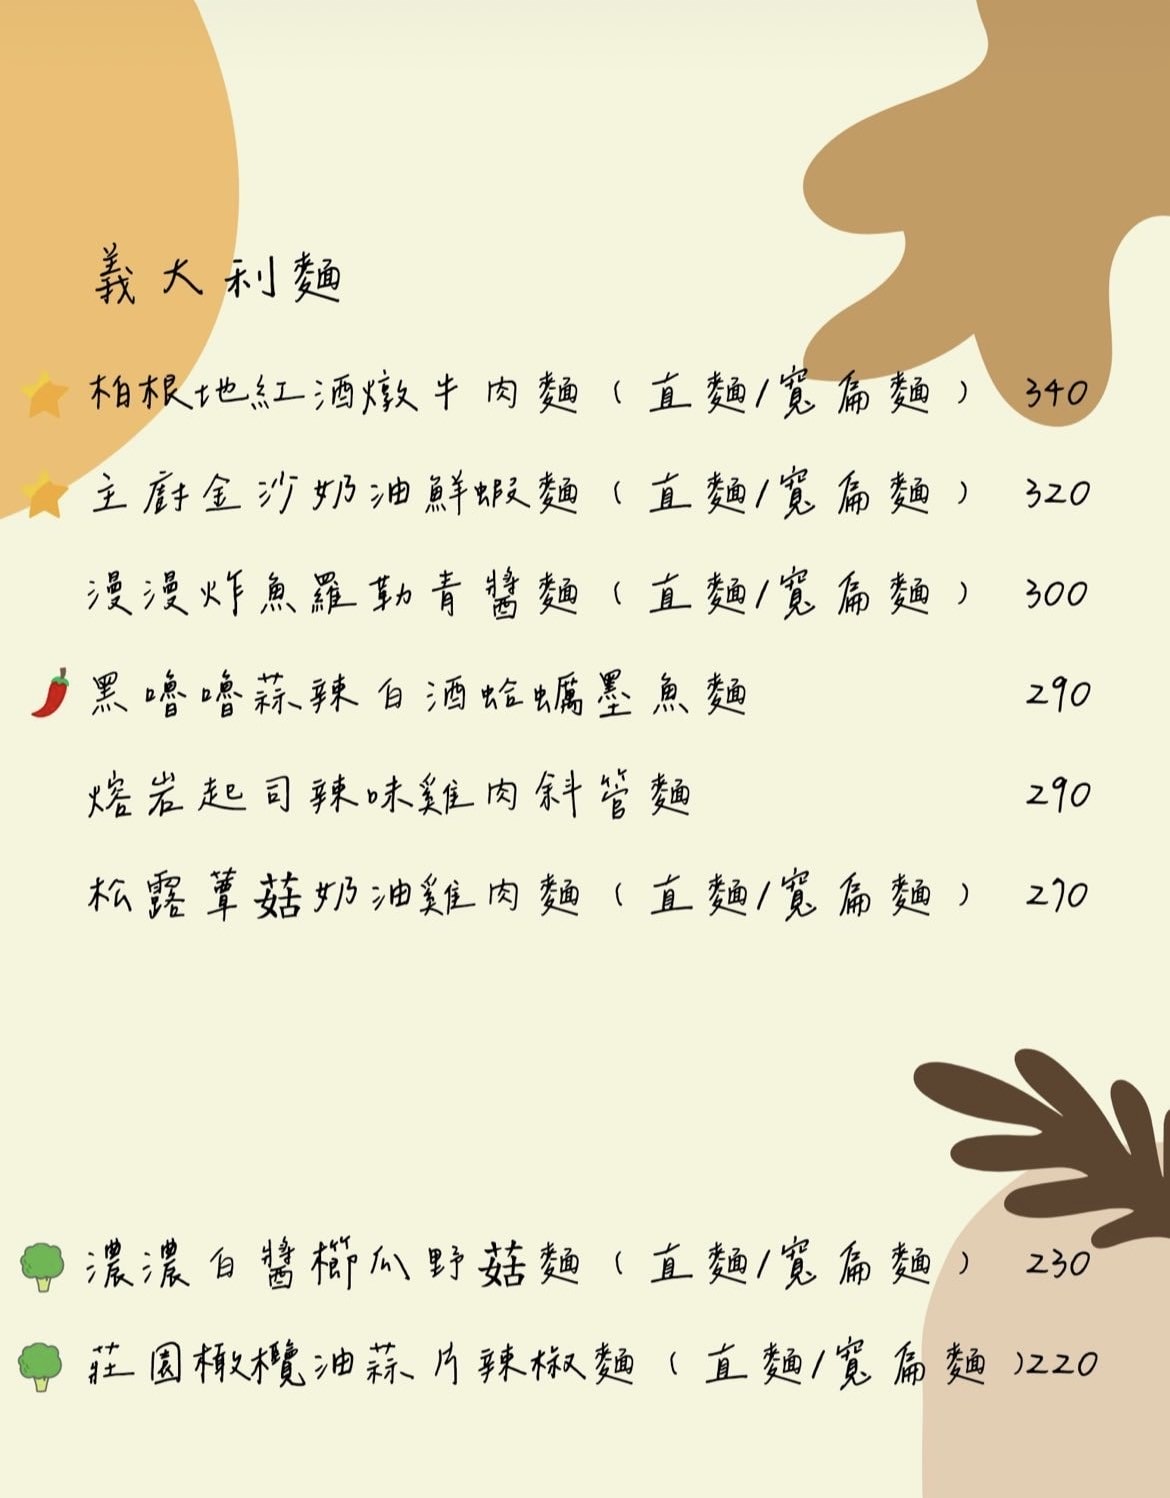 義大利麵
柏根地紅酒燉牛肉麵（直麵/寬扁麵） 340
主廚金沙奶油鮮蝦麵（直麵/寬扁麵） 320
漫漫炸魚羅勒青醬麵（直麵/寬扁麵） 300
黑嚕嚕蒜辣白酒蛤蠣墨魚麵 290
熔岩起司辣味雞肉斜管麵 290
松露蕈菇奶油雞肉麵（直麵/寬扁麵） 270
濃濃白醬櫛瓜野菇麵（直麵/寬扁麵） 230
莊園橄欖油蒜片辣椒麵（直麵/寬扁麵）220